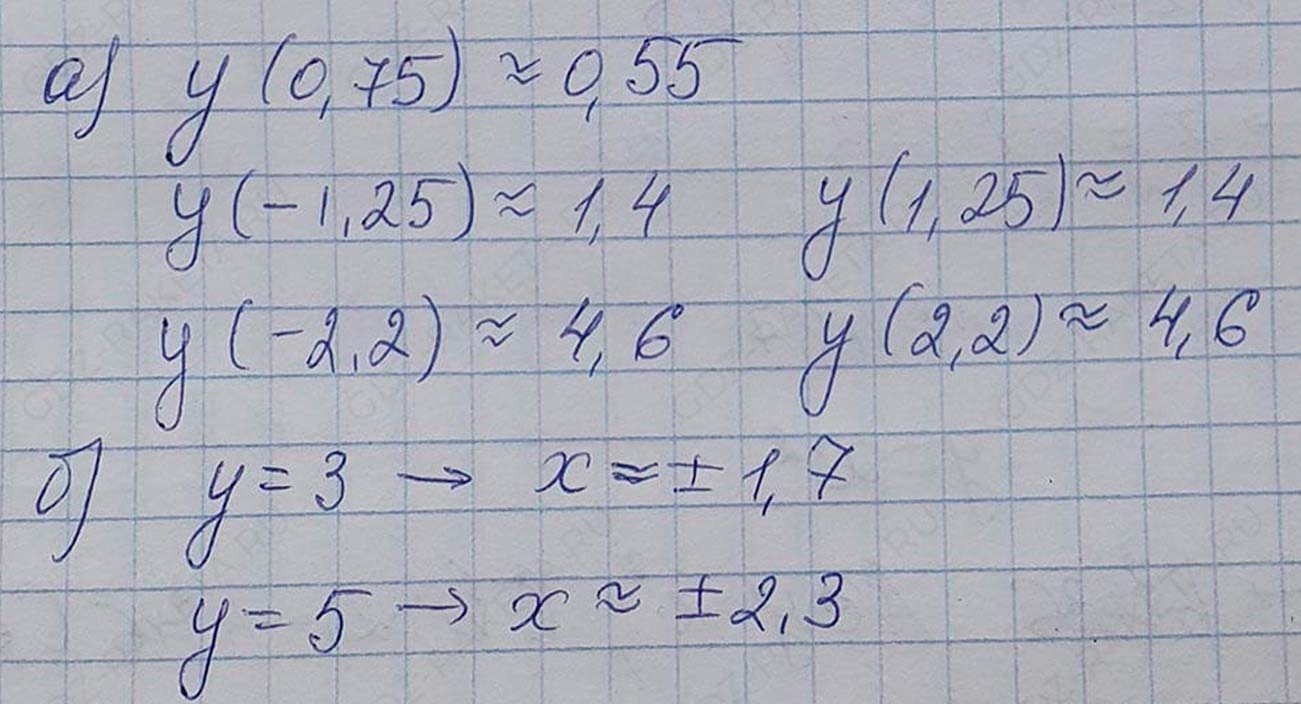 а) y(0,75) ≈ 0,55
y(-1,25) ≈ 1,4 y(1,25) ≈ 1,4
y(-2,2) ≈ 4,6 y(2,2) ≈ 4,6
б) y = 3 → x ≈ ± 1,7
y = 5 → x ≈ ± 2,3